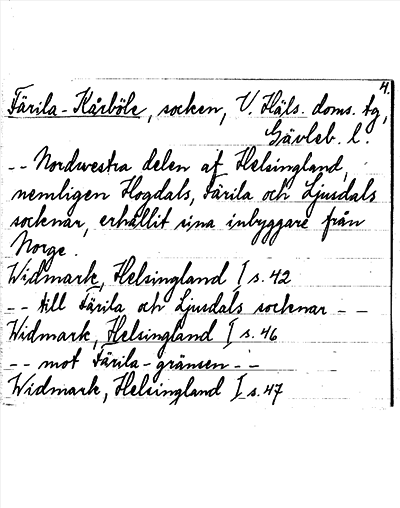 4.
Färila-Kårböle, socken, V. Häls. doms. tg,
Gävleb. l.
-- Nordwestra delen af Helsingland,
nemligen Hogdals, Färila och Ljusdals
socknar, erhållit sina inbyggare från
Norge.
Widmark, Helsingland I s. 42
-- till Färila och Ljusdals socknar --
Widmark, Helsingland I s. 46
-- mot Färila-gränsen --
Widmark, Helsingland I s. 47